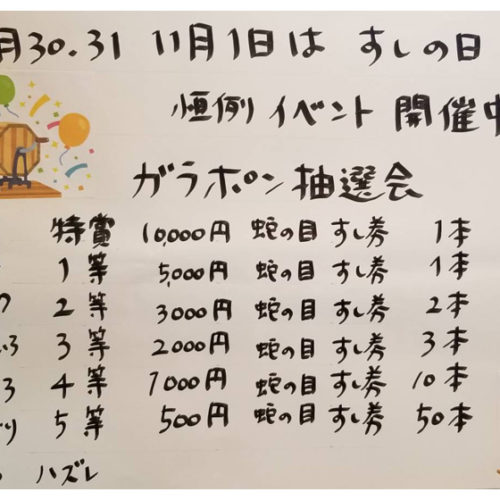 月30.31 11月1日は すしの日
恒例 イベント 開催中
ガラポン抽選会
特賞 10,000円 蛇の目 すし券 1本
1等 5,000円 蛇の目 すし券 1本
2等 3000円 蛇の目 すし券 2本
3等 2000円 蛇の目 すし券 3本
4等 1000円 蛇の目 すし券 10本
5等 500円 蛇の目 すし券 50本
ハズレ